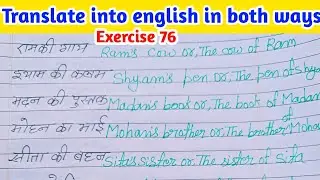 Translate into english in both ways
Exercise 76
रामकी गाय Ram's Cow or, The cow of Ram
श्याम की कलम Shyam's pen or, The pen of Shya
मदन की पुस्तक Madan's book or, The book of Madan
मोहन का भाई Mohan's brother or, The brother of Mohan
सीता की बहन Sita's sister or, The sister of Sita